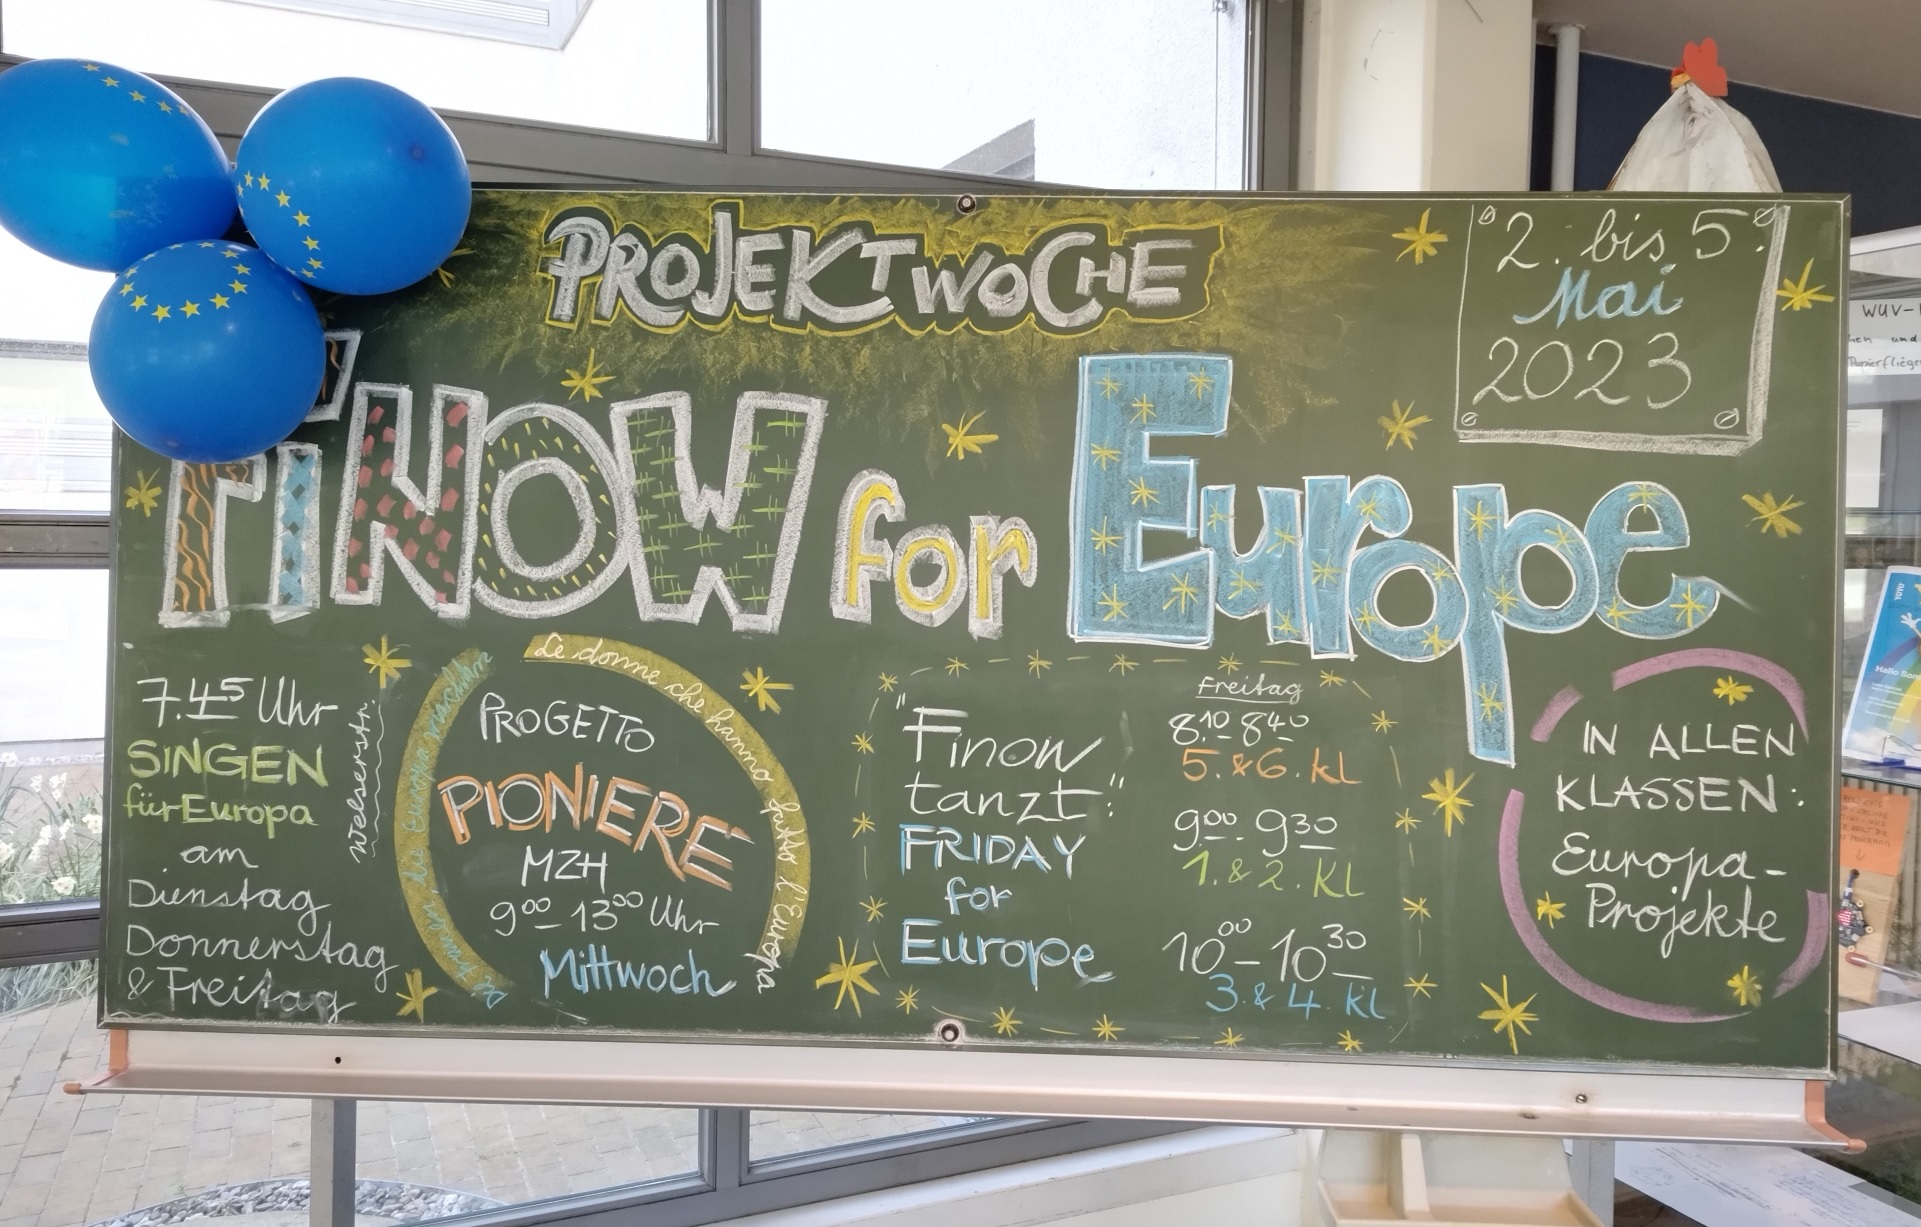 PROJEKTWOCHE
2. bis 5.
Mai
2023
FiNOW for Europe
7.45 Uhr
SINGEN
für Europa
am
Dienstag
Donnerstag
& Freitag
Welserstr.
Le donne che hanno fatto l'Europa
PROGETTO
PIONIERE
MZH
9⁰⁰ - 13⁰⁰ Uhr
Mittwoch
"Finow
tanzt:"
FRIDAY
for
Europe
Freitag
8¹⁰ - 8⁴⁰
5. & 6. kl
9⁰⁰ - 9³⁰
1. & 2. Kl
10⁰⁰ - 10³⁰
3. & 4. kl
IN ALLEN
KLASSEN:
Europa-
Projekte
WUV-
und
Papierflieger
Hello